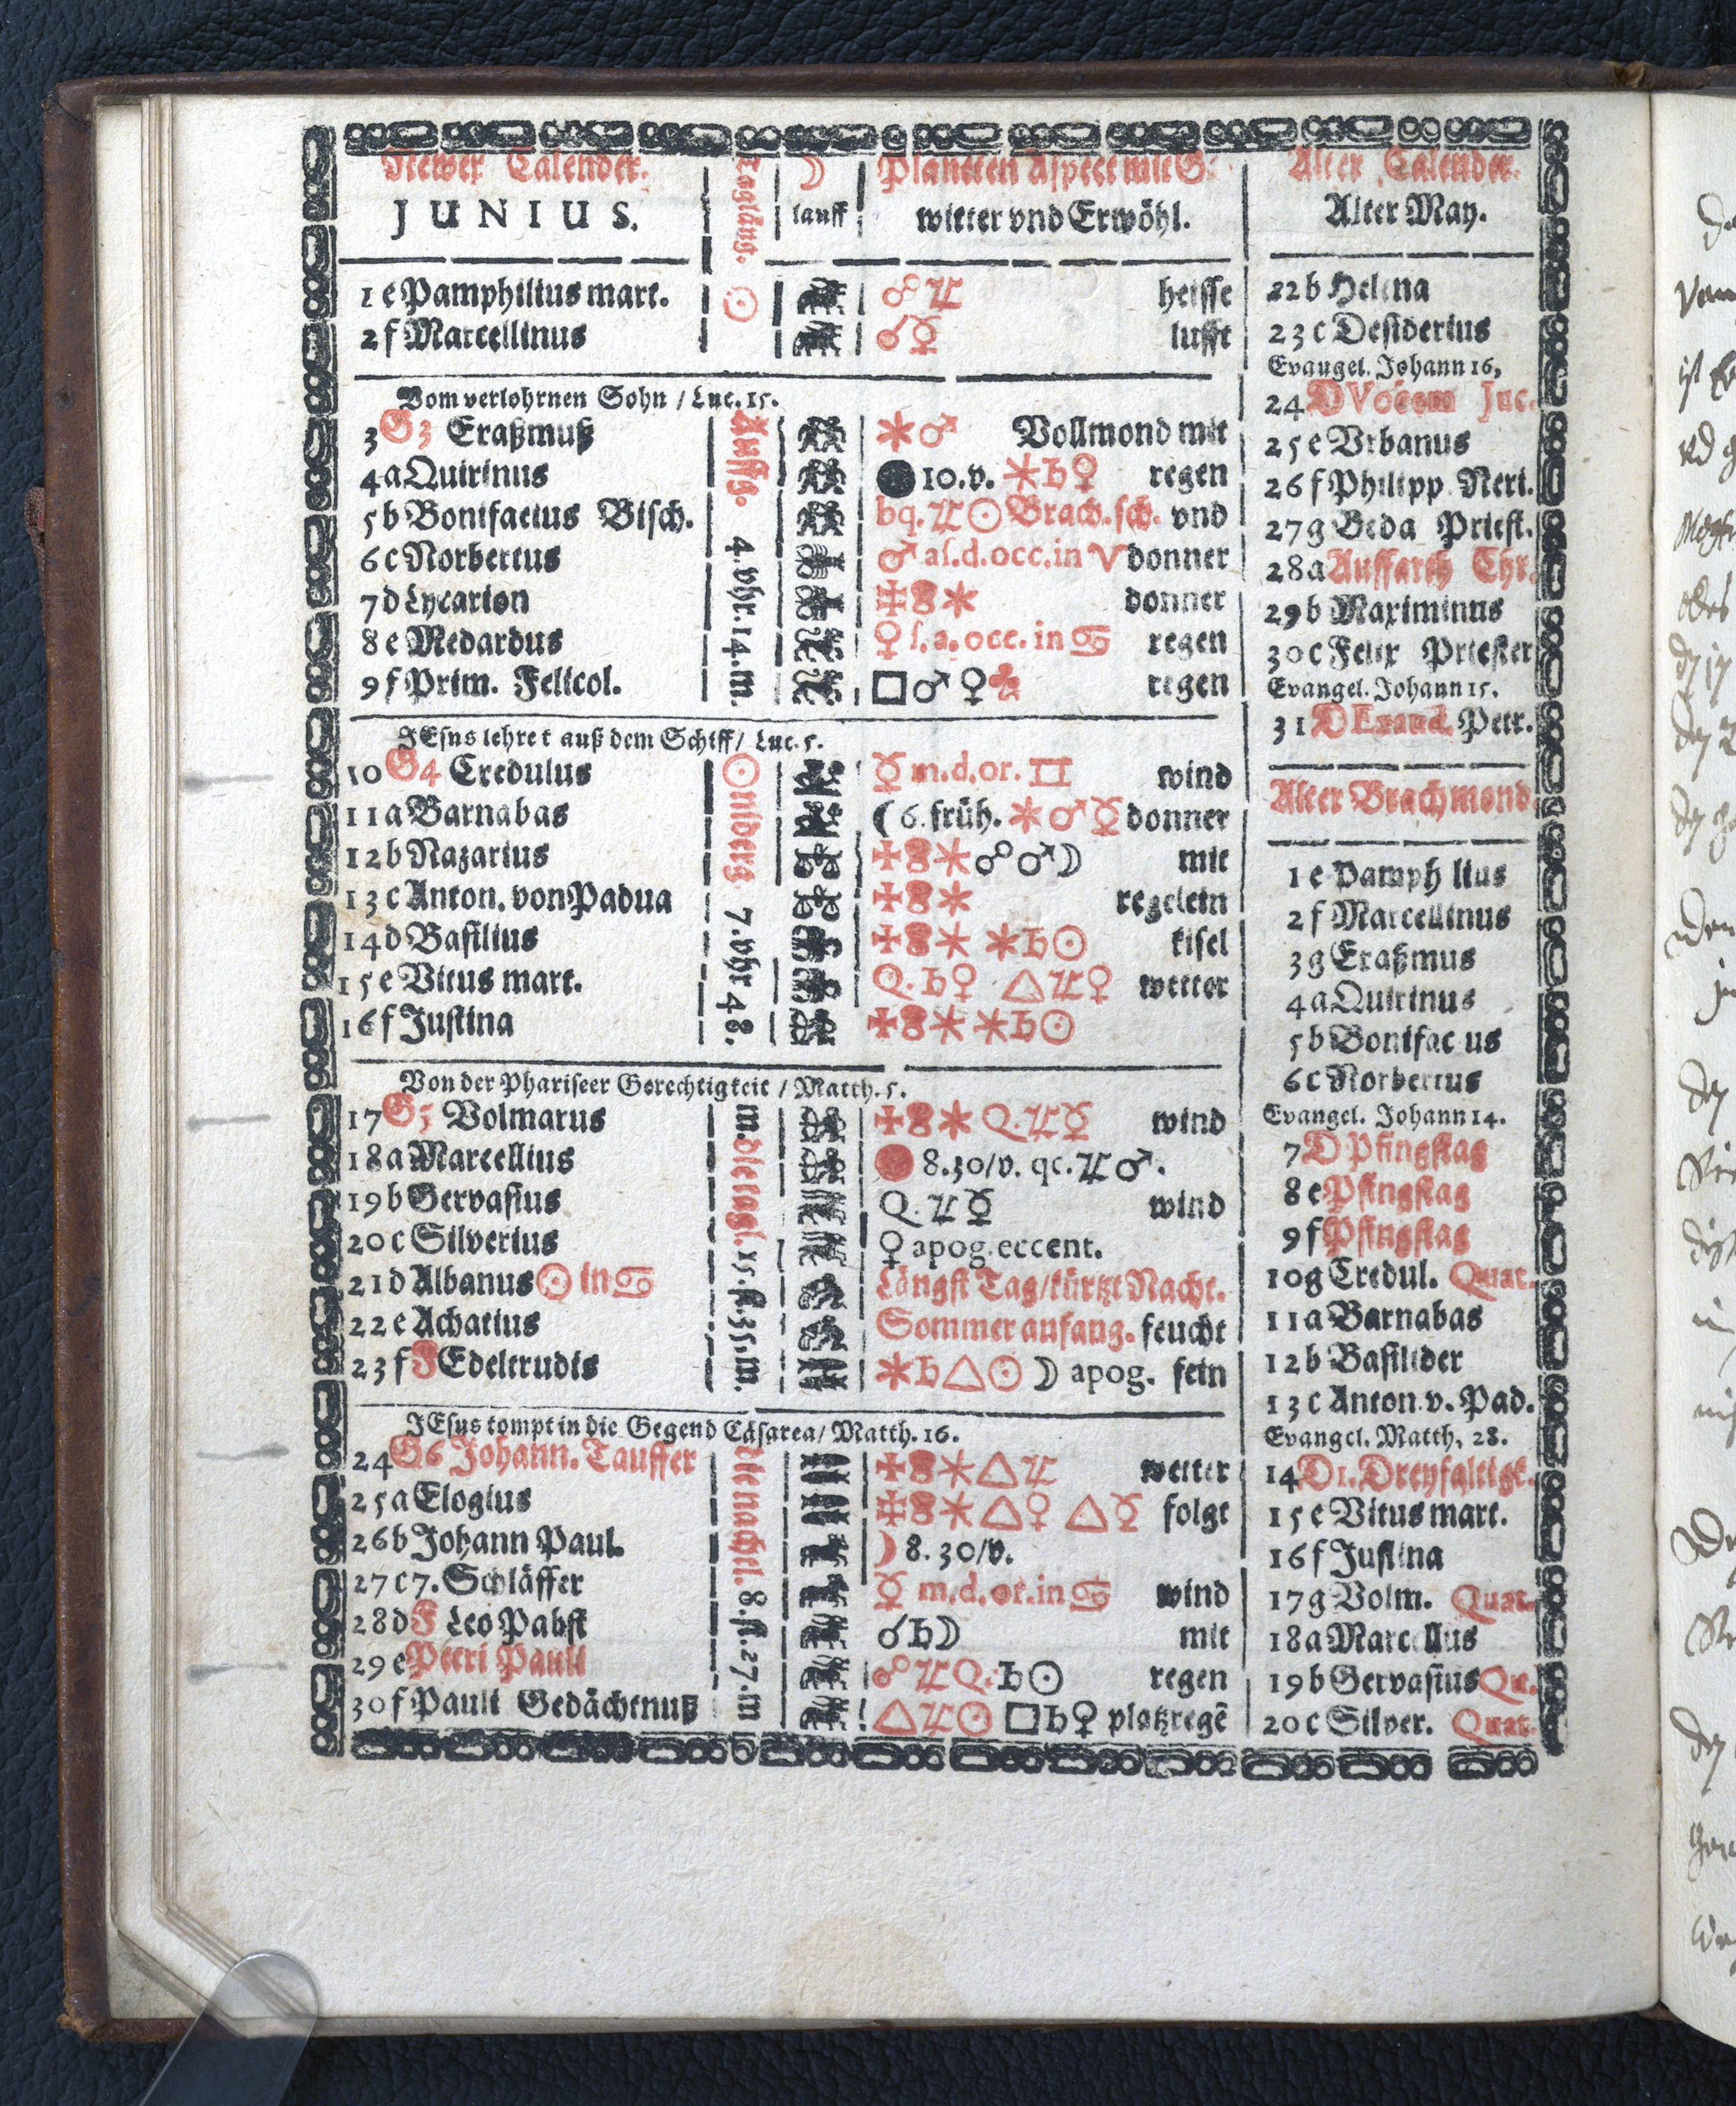 Newer Calender.
JUNIUS.
Taglång.
☽
lauff
Planeten Aspect mit G:
witter vnd Erwöhl.
Alter Calender.
Alter May.
1 e Pamphilius mart. ☍♃ heisse
2 f Marcellinus ☌☿ lufft
Vom verlohrnen Sohn / Luc. 15.
3 G3 Eraßmuß ⚹♂ Vollmond mit
4 a Quirinus ● 10. v. ⚹♄♀ regen
5 b Bonifacius Bisch. bq. ♃☉ Brach. sch. vnd
6 c Norbertus ♂ al. d. occ. in ♈ donner
7 d Lycarion donner
8 e Medardus ♀ s. a. occ. in ♋ regen
9 f Prim. Felicol. □♂♀ regen
JEsus lehret auß dem Schiff / Luc. 5.
10 G4 Credulus ☿ m. d. or. ♊ wind
11 a Barnabas ☾ 6. früh. ⚹♂☿ donner
12 b Nazarius ⚹☍♂☽ mit
13 c Anton. von Padua ⚹ regelein
14 d Basilius ⚹ ⚹♄☉ kisel
15 e Vitus mart. Q. ♄♀ △♃♀ wetter
16 f Justina ⚹ ⚹♄☉
Von der Phariseer Gerechtigkeit / Matth. 5.
17 G5 Volmarus ⚹ Q. ♃☿ wind
18 a Marcellius ● 8. 30/v. qc. ♃♂.
19 b Gervasius Q. ♃☿ wind
20 c Silverius ♀ apog. eccent.
21 d Albanus ☉ in ♋ Längst Tag/kürtzt Nacht.
22 e Achatius Sommer anfang. feucht
23 f F Edeltrudis ⚹♄△☉☽ apog. fein
JEsus kompt in die Gegend Cäsarea / Matth. 16.
24 G6 Johann. Tauffer ⚹△♃ wetter
25 a Elogius ⚹△♀ △☿ folgt
26 b Johann Paul. ☽ 8. 30/v.
27 c 7. Schläffer ☿ m. d. or. in ♋ wind
28 d F Leo Pabst ☌♄☽ mit
29 e Petri Pauli ☍♃ Q. ♄☉ regen
30 f Pauli Gedächtnuß △♃☉ □♄♀ platzregē
☉ Auffg. 4. vhr. 14. m.
☉ niderg 7. vhr 48.
m. die tagl. 15. st. 35. m.
die nachtl. 8. st. 27. m
22 b Helena
23 c Desiderius
Evangel. Johann 16,
24 D Vocem Juc.
25 e Vrbanus
26 f Philipp Neri.
27 g Beda Priest.
28 a Auffarth Chr.
29 b Maximinus
30 c Felix Priester
Evangel. Johann 15.
31 D Exaud. Petr.
Alter Brachmond.
1 e Pamph lius
2 f Marcellinus
3 g Eraßmus
4 a Quirinus
5 b Bonifac us
6 c Norbertus
Evangel. Johann 14.
7 D Pfingstag
8 e Pfingstag
9 f Pfingstag
10 g Credul. Quat.
11 a Barnabas
12 b Basilider
13 c Anton. v. Pad.
Evangel. Matth. 28.
14 D 1. Dreyfaltigk.
15 e Vitus mart.
16 f Justina
17 g Volm. Quat.
18 a Marcellus
19 b Gervasius Qu.
20 c Silver. Quat.